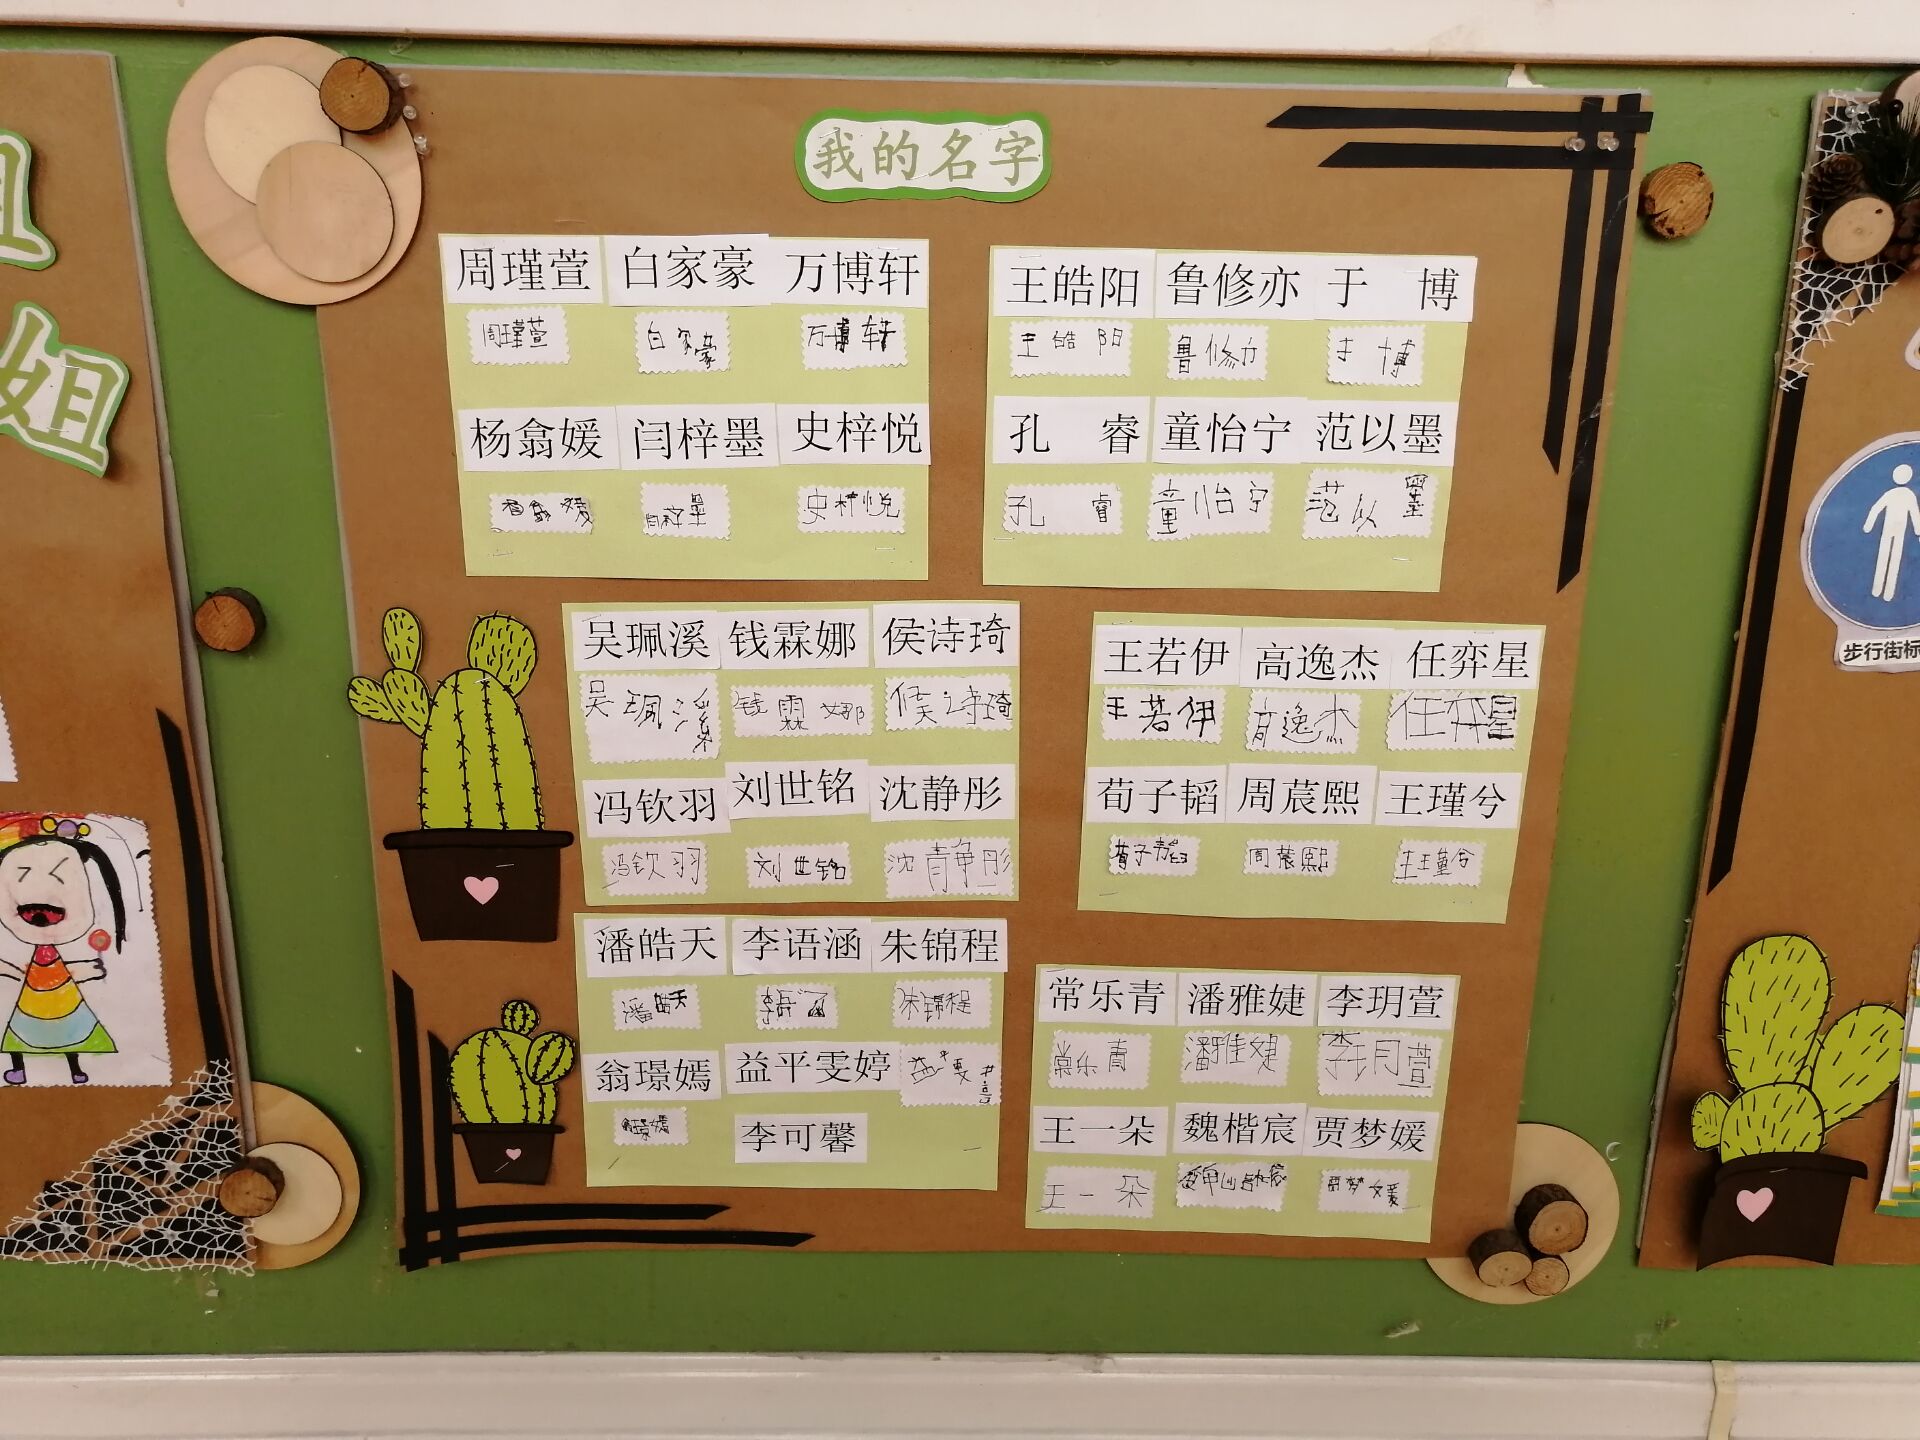 我的名字
周瑾萱 白家豪 万博轩
周瑾萱 白家豪 万博轩
杨翕媛 闫梓墨 史梓悦
闫梓墨 史梓悦
王皓阳 鲁修亦 于 博
王皓阳 鲁修 博
孔 睿 童怡宁 范以墨
孔 睿 童怡宁 范以墨
吴珮溪 钱霖娜 侯诗琦
吴珮溪 钱霖娜 侯诗琦
冯钦羽 刘世铭 沈静彤
冯钦羽 刘世铭 沈静彤
王若伊 高逸杰 任弈星
王若伊 高逸杰 任弈星
荀子韬 周莀熙 王瑾兮
荀子 周莀熙 王瑾兮
潘皓天 李语涵 朱锦程
潘皓天 李 朱锦程
翁璟嫣 益平雯婷
翁璟嫣 益平雯
李可馨
常乐青 潘雅婕 李玥萱
常乐青 潘雅婕 李玥萱
王一朵 魏楷宸 贾梦媛
王一朵 贾梦媛
姐
姐
步行街标